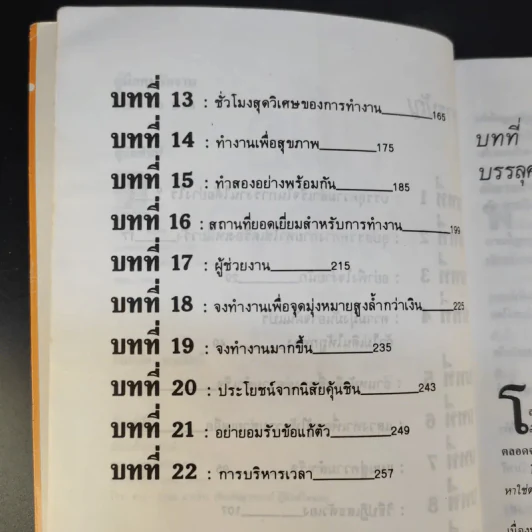 บทที่ 13 : ชั่วโมงสุดวิเศษของการทำงาน 165
บทที่ 14 : ทำงานเพื่อสุขภาพ 175
บทที่ 15 : ทำสองอย่างพร้อมกัน 185
บทที่ 16 : สถานที่ยอดเยี่ยมสำหรับการทำงาน 199
บทที่ 17 : ผู้ช่วยงาน 215
บทที่ 18 : จงทำงานเพื่อจุดมุ่งหมายสูงล้ำกว่าเงิน 225
บทที่ 19 : จงทำงานมากขึ้น 235
บทที่ 20 : ประโยชน์จากนิสัยคุ้นชิน 243
บทที่ 21 : อย่ายอมรับข้อแก้ตัว 249
บทที่ 22 : การบริหารเวลา 257
บทที่